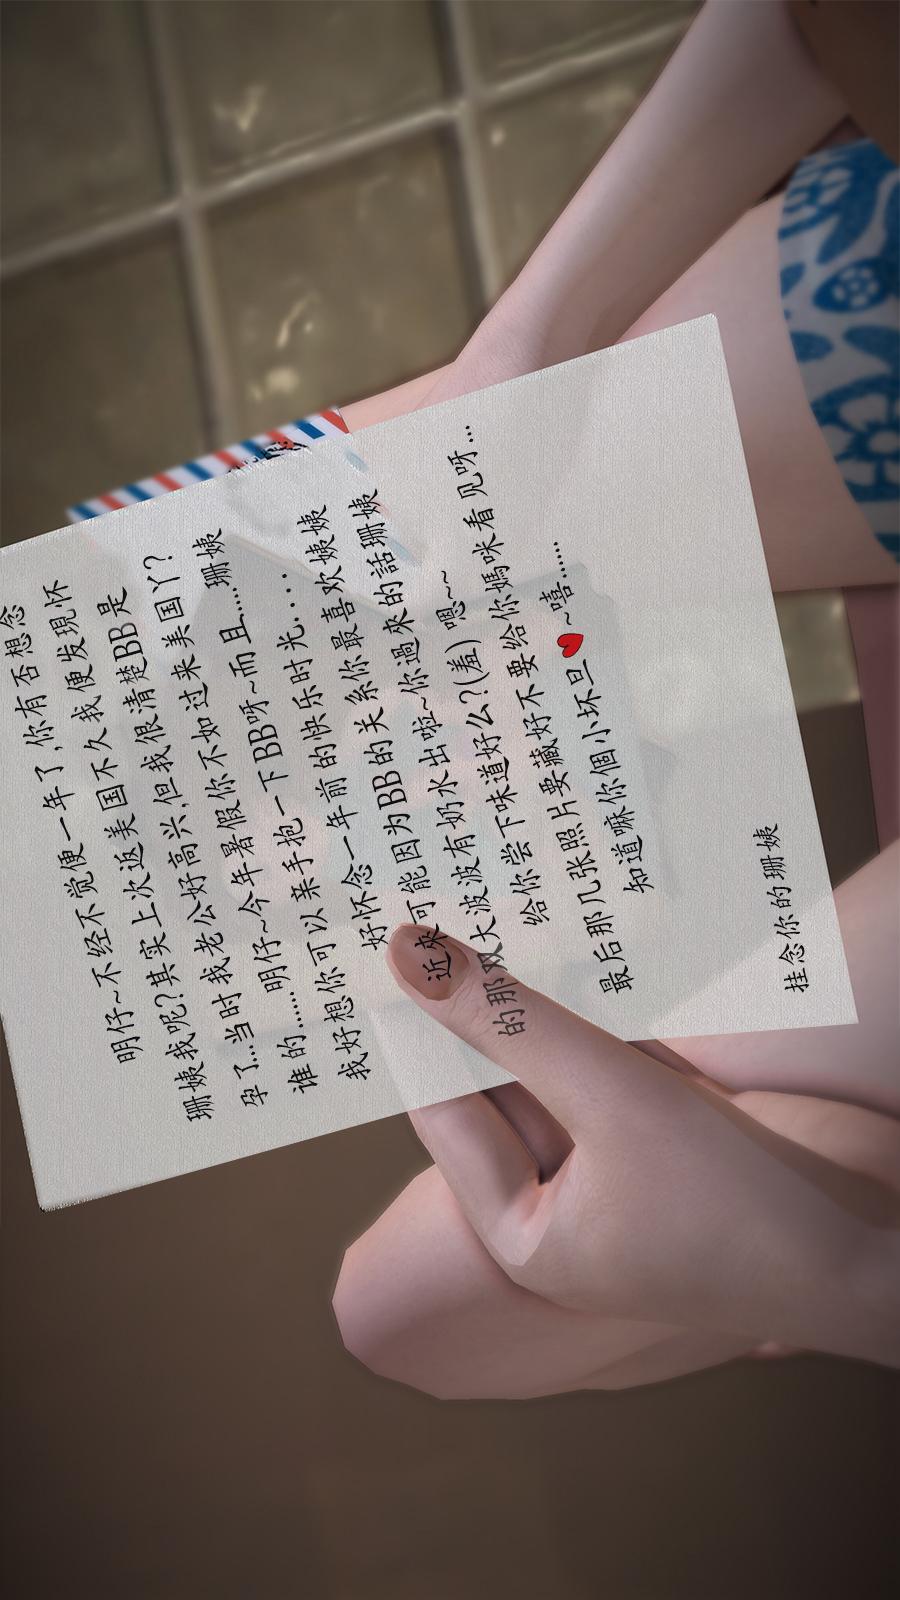 明仔~不经不觉便一年了,你有否想念
珊姨我呢?其实上次返美国不久我便发現怀
孕了...当时我老公好高兴,但我很清楚BB是
谁的......明仔~今年暑假你不如过来美国丫?
我好想你可以亲手抱一下BB呀~而且.....珊姨
好怀念一年前的快乐时光....
近來可能因为BB的关系你最喜欢姨姨
的那双大波波有奶水出啦~你過來的話珊姨
给你尝下味道好么?(羞) 嗯~~
最后那几张照片要藏好不要给你媽咪看见呀...
知道嘛你個小坏旦♥~嘻......
挂念你的珊姨